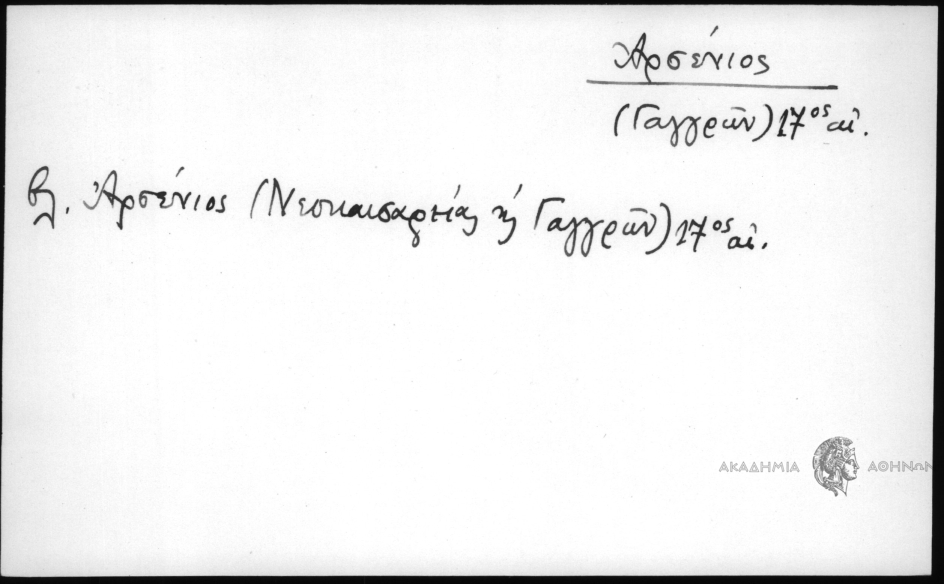 Ἀρσένιος
(Γαγγρῶν) 17ος αἰ.
βλ. Ἀρσένιος (Νεοκαισαρείας κ Γαγγρῶν) 17ος αἰ.
ΑΚΑΔΗΜΙΑ ΑΘΗΝΩΝ